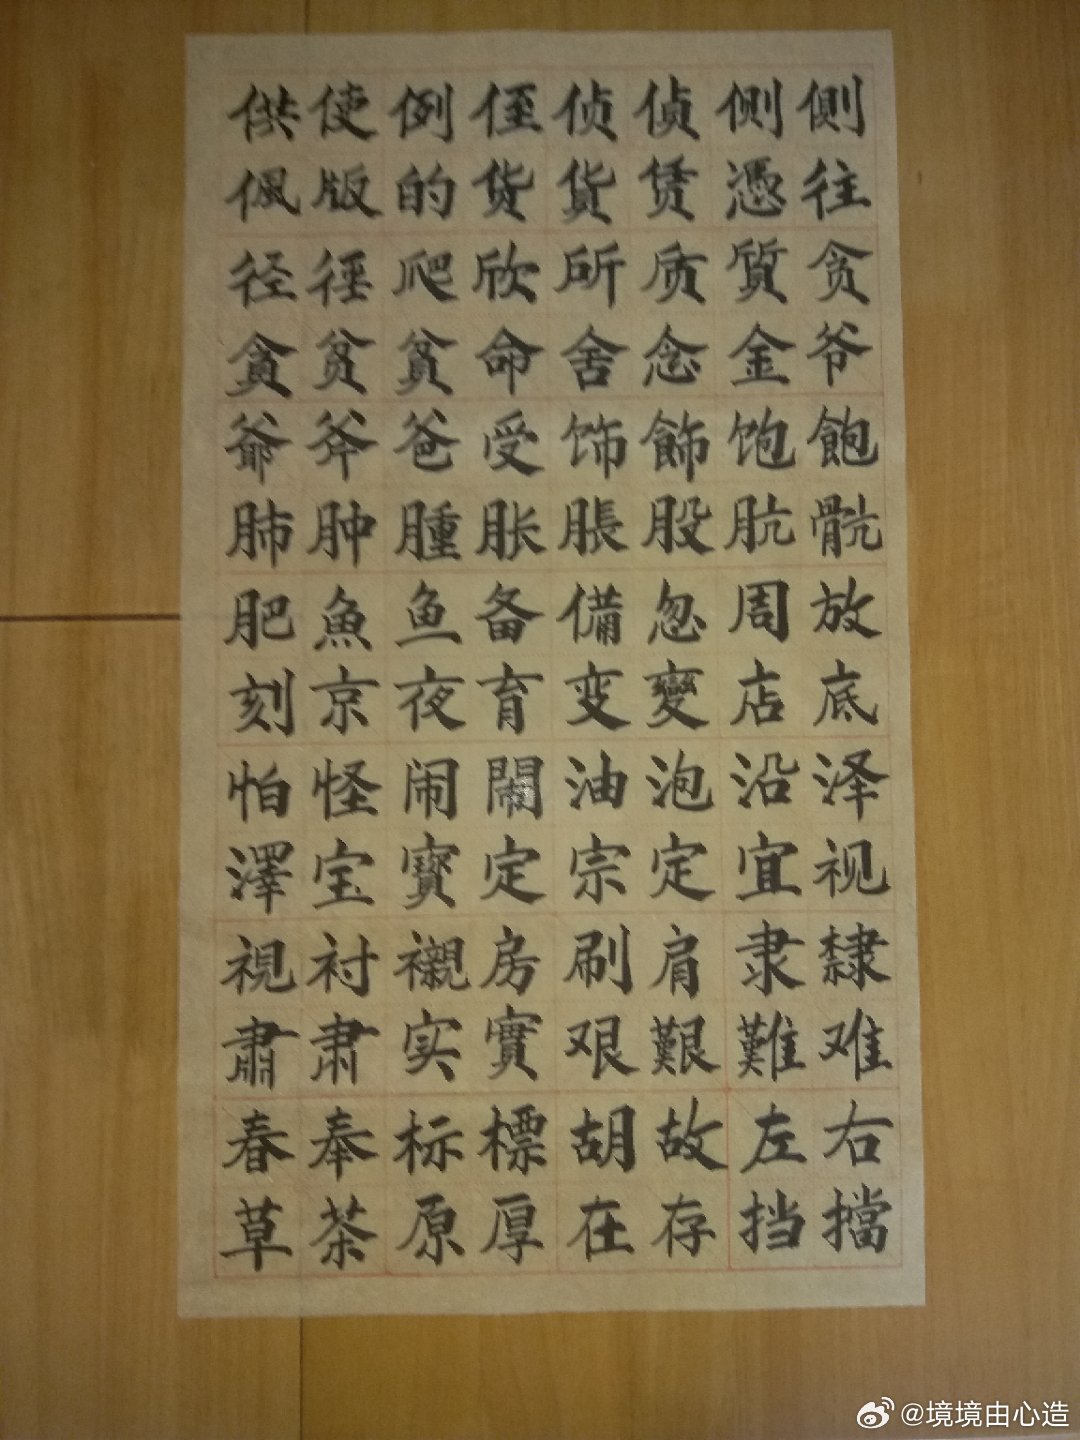 供使例侄侦偵侧側
佩版的货貨赁憑往
径徑爬欣所质質贪
貪贫貧命舍念金爷
爺斧爸受饰飾饱飽
肺肿腫胀脹股肮骯
肥魚鱼备備忽周放
刻京夜育变變店底
怕怪闹鬧油泡沿泽
澤宝寶定宗定宜视
視衬襯房刷肩隶隸
肅肃实實艰艱難难
春奉标標胡故左右
草茶原厚在存挡擋
@境境由心造